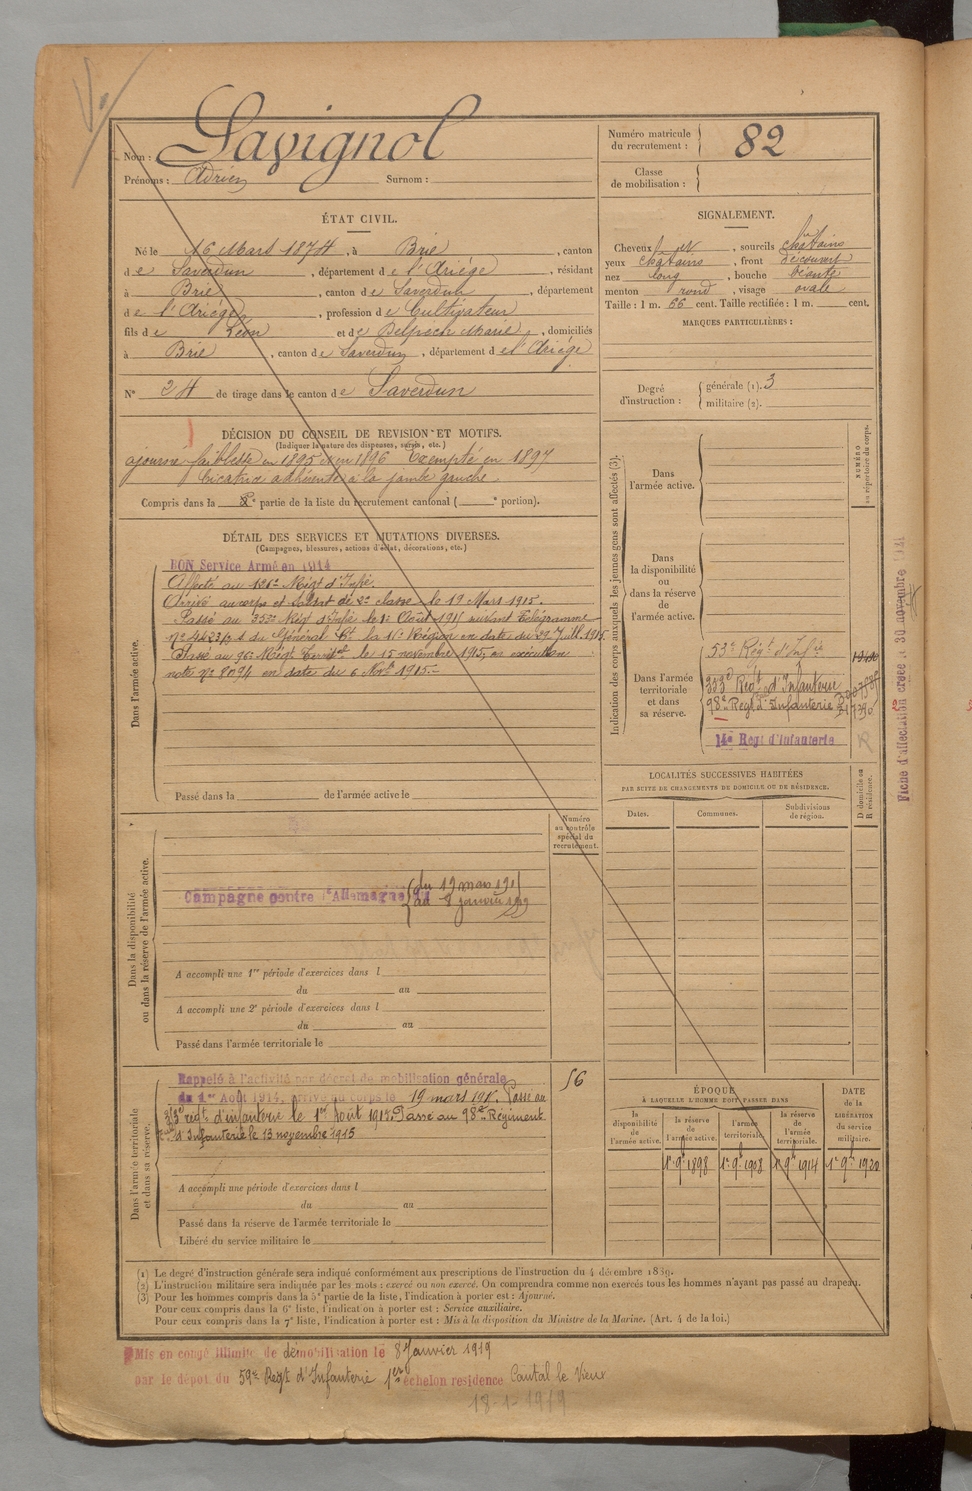 V.
Nom : Lavignol
Prénoms : Adrien Surnom :
Numéro matricule du recrutement : 82
Classe de mobilisation :
ÉTAT CIVIL.
Né le 16 Mars 1874, à Brie, canton
de Saverdun, département de l'Ariége, résidant
à Brie, canton de Saverdun, département
de l'Ariége, profession de Cultivateur
fils de Léon et de Delpech Marie, domiciliés
à Brie, canton de Saverdun, département de l'Ariége
N° 24 de tirage dans le canton de Saverdun
SIGNALEMENT.
Cheveux et, sourcils châtains
yeux châtains, front découvert
nez long, bouche béante
menton rond, visage ovale
Taille : 1 m. 66 cent. Taille rectifiée : 1 m. cent.
MARQUES PARTICULIÈRES :
Degré d'instruction : générale (1). 3
militaire (2).
DÉCISION DU CONSEIL DE REVISION ET MOTIFS.
(Indiquer la nature des dispenses, sursis, etc.)
ajourné faiblesse en 1895 et en 1896 Exempté en 1897
Cicatrice adhérente à la jambe gauche.
Compris dans la 2e partie de la liste du recrutement cantonal ( e portion).
DÉTAIL DES SERVICES ET MUTATIONS DIVERSES.
(Campagnes, blessures, actions d'éclat, décorations, etc.)
Dans l'armée active.
BON Service Armé en 1914
Affecté au Régt d'Infie.
Arrivé au corps et soldat de 2e classe le 19 Mars 1915.
Passé au Régt d'Infie le 1er Août 1915 suivant Télégramme
du Général Ct la Région en date du 29 Juill. 1915
Passé au 96e Régt Territal le 15 novembre 1915, en exécution
note n° 8094 en date du 6 Novbre 1915.
Passé dans la de l'armée active le
Indication des corps auxquels les jeunes gens sont affectés (3).
NUMÉRO au répertoire du corps.
Dans l'armée active.
Dans la disponibilité ou dans la réserve de l'armée active.
Dans l'armée territoriale et dans sa réserve.
53e Régt d'Infie
Régt d'Infanterie
98e Régt d'Infanterie
14e Régt d'Infanterie
Fiche d'affectation créée le 30 novembre
LOCALITÉS SUCCESSIVES HABITÉES
PAR SUITE DE CHANGEMENTS DE DOMICILE OU DE RÉSIDENCE.
Dates. Communes. Subdivisions de région.
D domicile ou R résidence.
Numéro au contrôle spécial du recrutement.
Dans la disponibilité ou dans la réserve de l'armée active.
Campagne contre l'Allemagne du 19 mars 191
au 8 janvier 1919
A accompli une 1re période d'exercices dans l
du au
A accompli une 2e période d'exercices dans l
du au
Passé dans l'armée territoriale le
Dans l'armée territoriale et dans sa réserve.
56
Rappelé à l'activité par décret de mobilisation générale
du 1er Août 1914. Arrivé au corps le 19 mars 1915. Passé au
régt d'infanterie le 1er Août 1915. Passé au 98e Régiment
d'Infanterie le 13 novembre 1915
A accompli une période d'exercices dans l
du au
Passé dans la réserve de l'armée territoriale le
Libéré du service militaire le
ÉPOQUE
À LAQUELLE L'HOMME DOIT PASSER DANS
la disponibilité de l'armée active. la réserve de l'armée active. l'armée territoriale. la réserve de l'armée territoriale.
DATE de la LIBÉRATION du service militaire.
1er 9bre 1898 1er 9bre 1908 1er 9bre 1914 1er 9bre 1920
(1) Le degré d'instruction générale sera indiqué conformément aux prescriptions de l'instruction du 4 décembre 1889.
(2) L'instruction militaire sera indiquée par les mots : exercé ou non exercé. On comprendra comme non exercés tous les hommes n'ayant pas passé au drapeau.
(3) Pour les hommes compris dans la 5e partie de la liste, l'indication à porter est : Ajourné.
Pour ceux compris dans la 6e liste, l'indication à porter est : Service auxiliaire.
Pour ceux compris dans la 7e liste, l'indication à porter est : Mis à la disposition du Ministre de la Marine. (Art. 4 de la loi.)
Mis en congé illimité de démobilisation le 8 Janvier 1919
par le dépôt du 59e Régt d'Infanterie 1er échelon residence Cantal le Vieux
18-1-1919